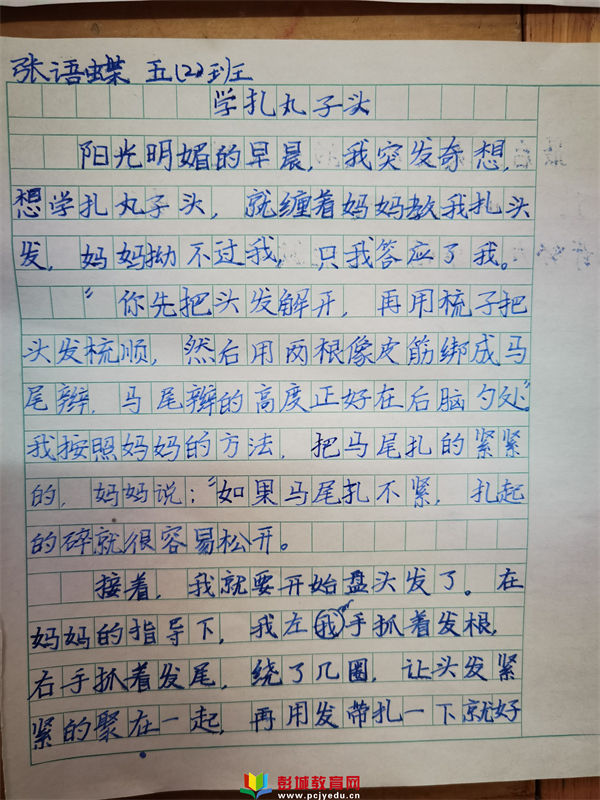 张语蝶 五(2)班
学扎丸子头
阳光明媚的早晨，我突发奇想，
想学扎丸子头，就缠着妈妈教我扎头
发，妈妈拗不过我，只我答应了我。
“你先把头发解开，再用梳子把
头发梳顺，然后用两根像皮筋绑成马
尾辫，马尾辫的高度正好在后脑勺处”
我按照妈妈的方法，把马尾扎的紧紧
的，妈妈说：“如果马尾扎不紧，扎起
的碎就很容易松开。
接着，我就要开始盘头发了。在
妈妈的指导下，我左我手抓着发根，
右手抓着发尾，绕了几圈，让头发紧
紧的聚在一起，再用发带扎一下就好
彭城教育网
www.pcjyedu.cn